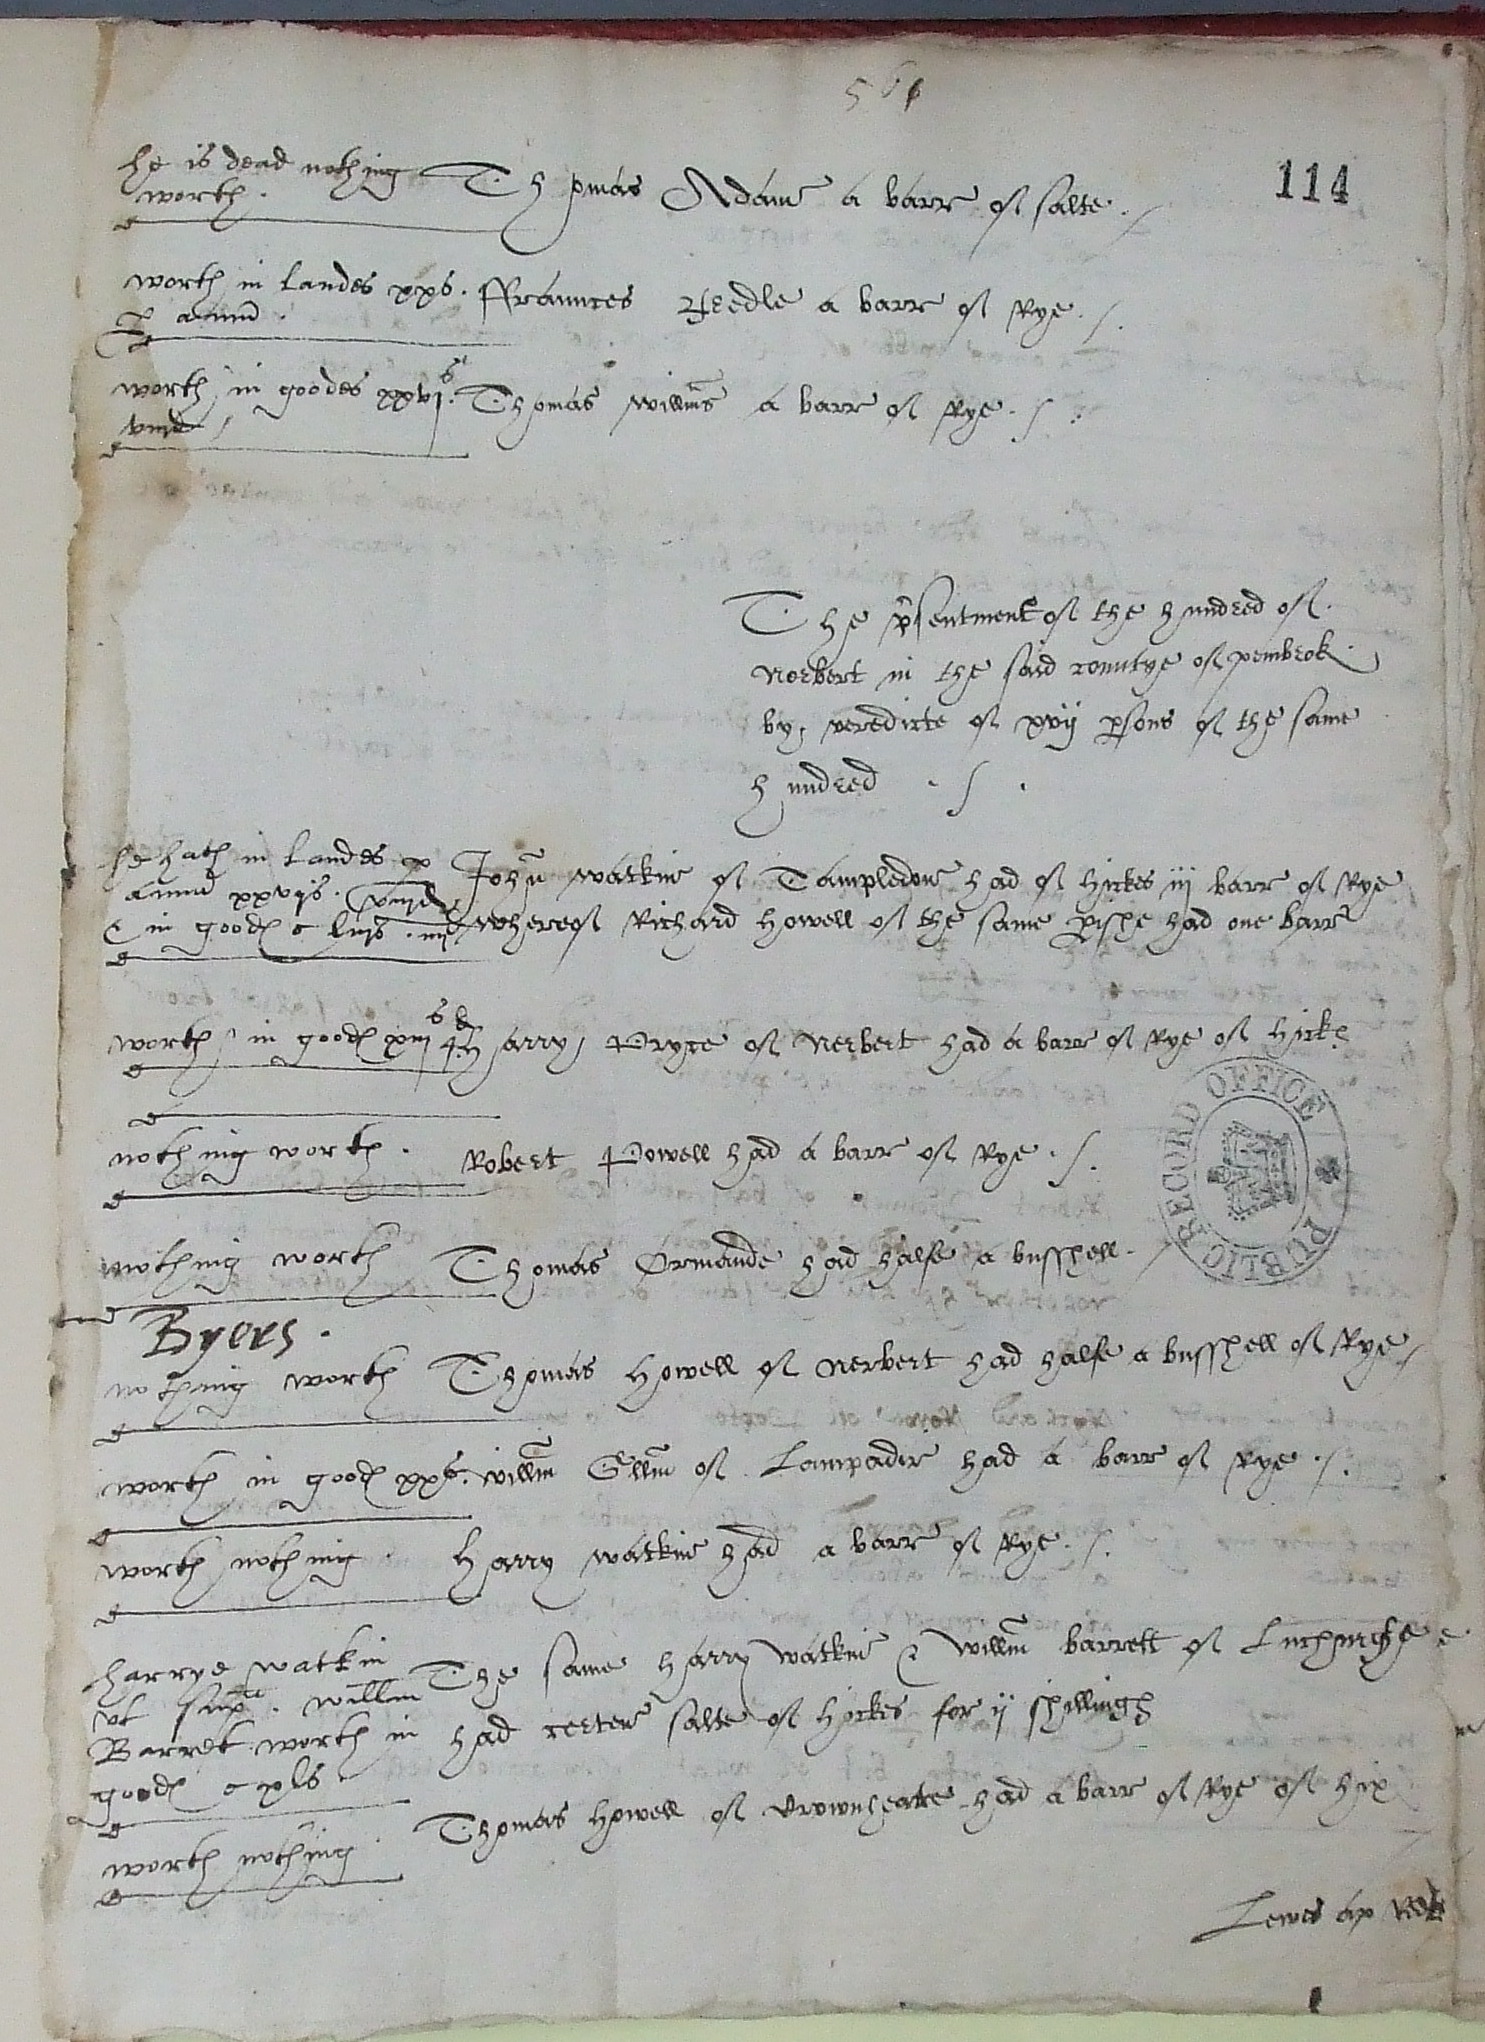 561
114
he is dead nothing
worth .
Thomas Adam a barr of salte . /
worth in landes xxs .
p annū .
Ffraunces Reedle a barr of Rye . / .
worth in goodes xxvjs .
viijd /
Thomas willms a barr of Rye . / .
The p̃sentment of the hundred of .
Nerbert in the said countye of pembrok .
by veredicte of xvij psons of the same
hundred . / .
he hath in landes p
annū xxvjs . viijd
& in good℮ c liijs . iiijd
John̄ watkin of Tampledon had of hickes iij barr of Rye
whereof Richard howell of the same pishe had one barr
worth in good℮ xiijs 4d
harry Pryce of Nerbert had a barr of Rye of hick℮
nothing worth .
Robert Powell had a barr of Rye . / .
nothing worth
Thomas Ormande had halfe a busshell . /
Byers .
nothing worth
Thomas howell of Nerbert had halfe a busshell of Rye /
worth in good℮ xxs .
willm̄ Gllm̄ of Lampadir had a barr of Rye . / .
worth nothing .
harry watkin had a barr of Rye . / .
harrye watkin
vt supa . willm
Barret worth in
good℮ c xls
The same harry watkin & willm̄ barrett of
had certen salte of hickes for ij shilling℮
worth nothing .
Thomas howell of had a barr of Rye of hix
Lewes ap
PUBLIC RECORD OFFICE